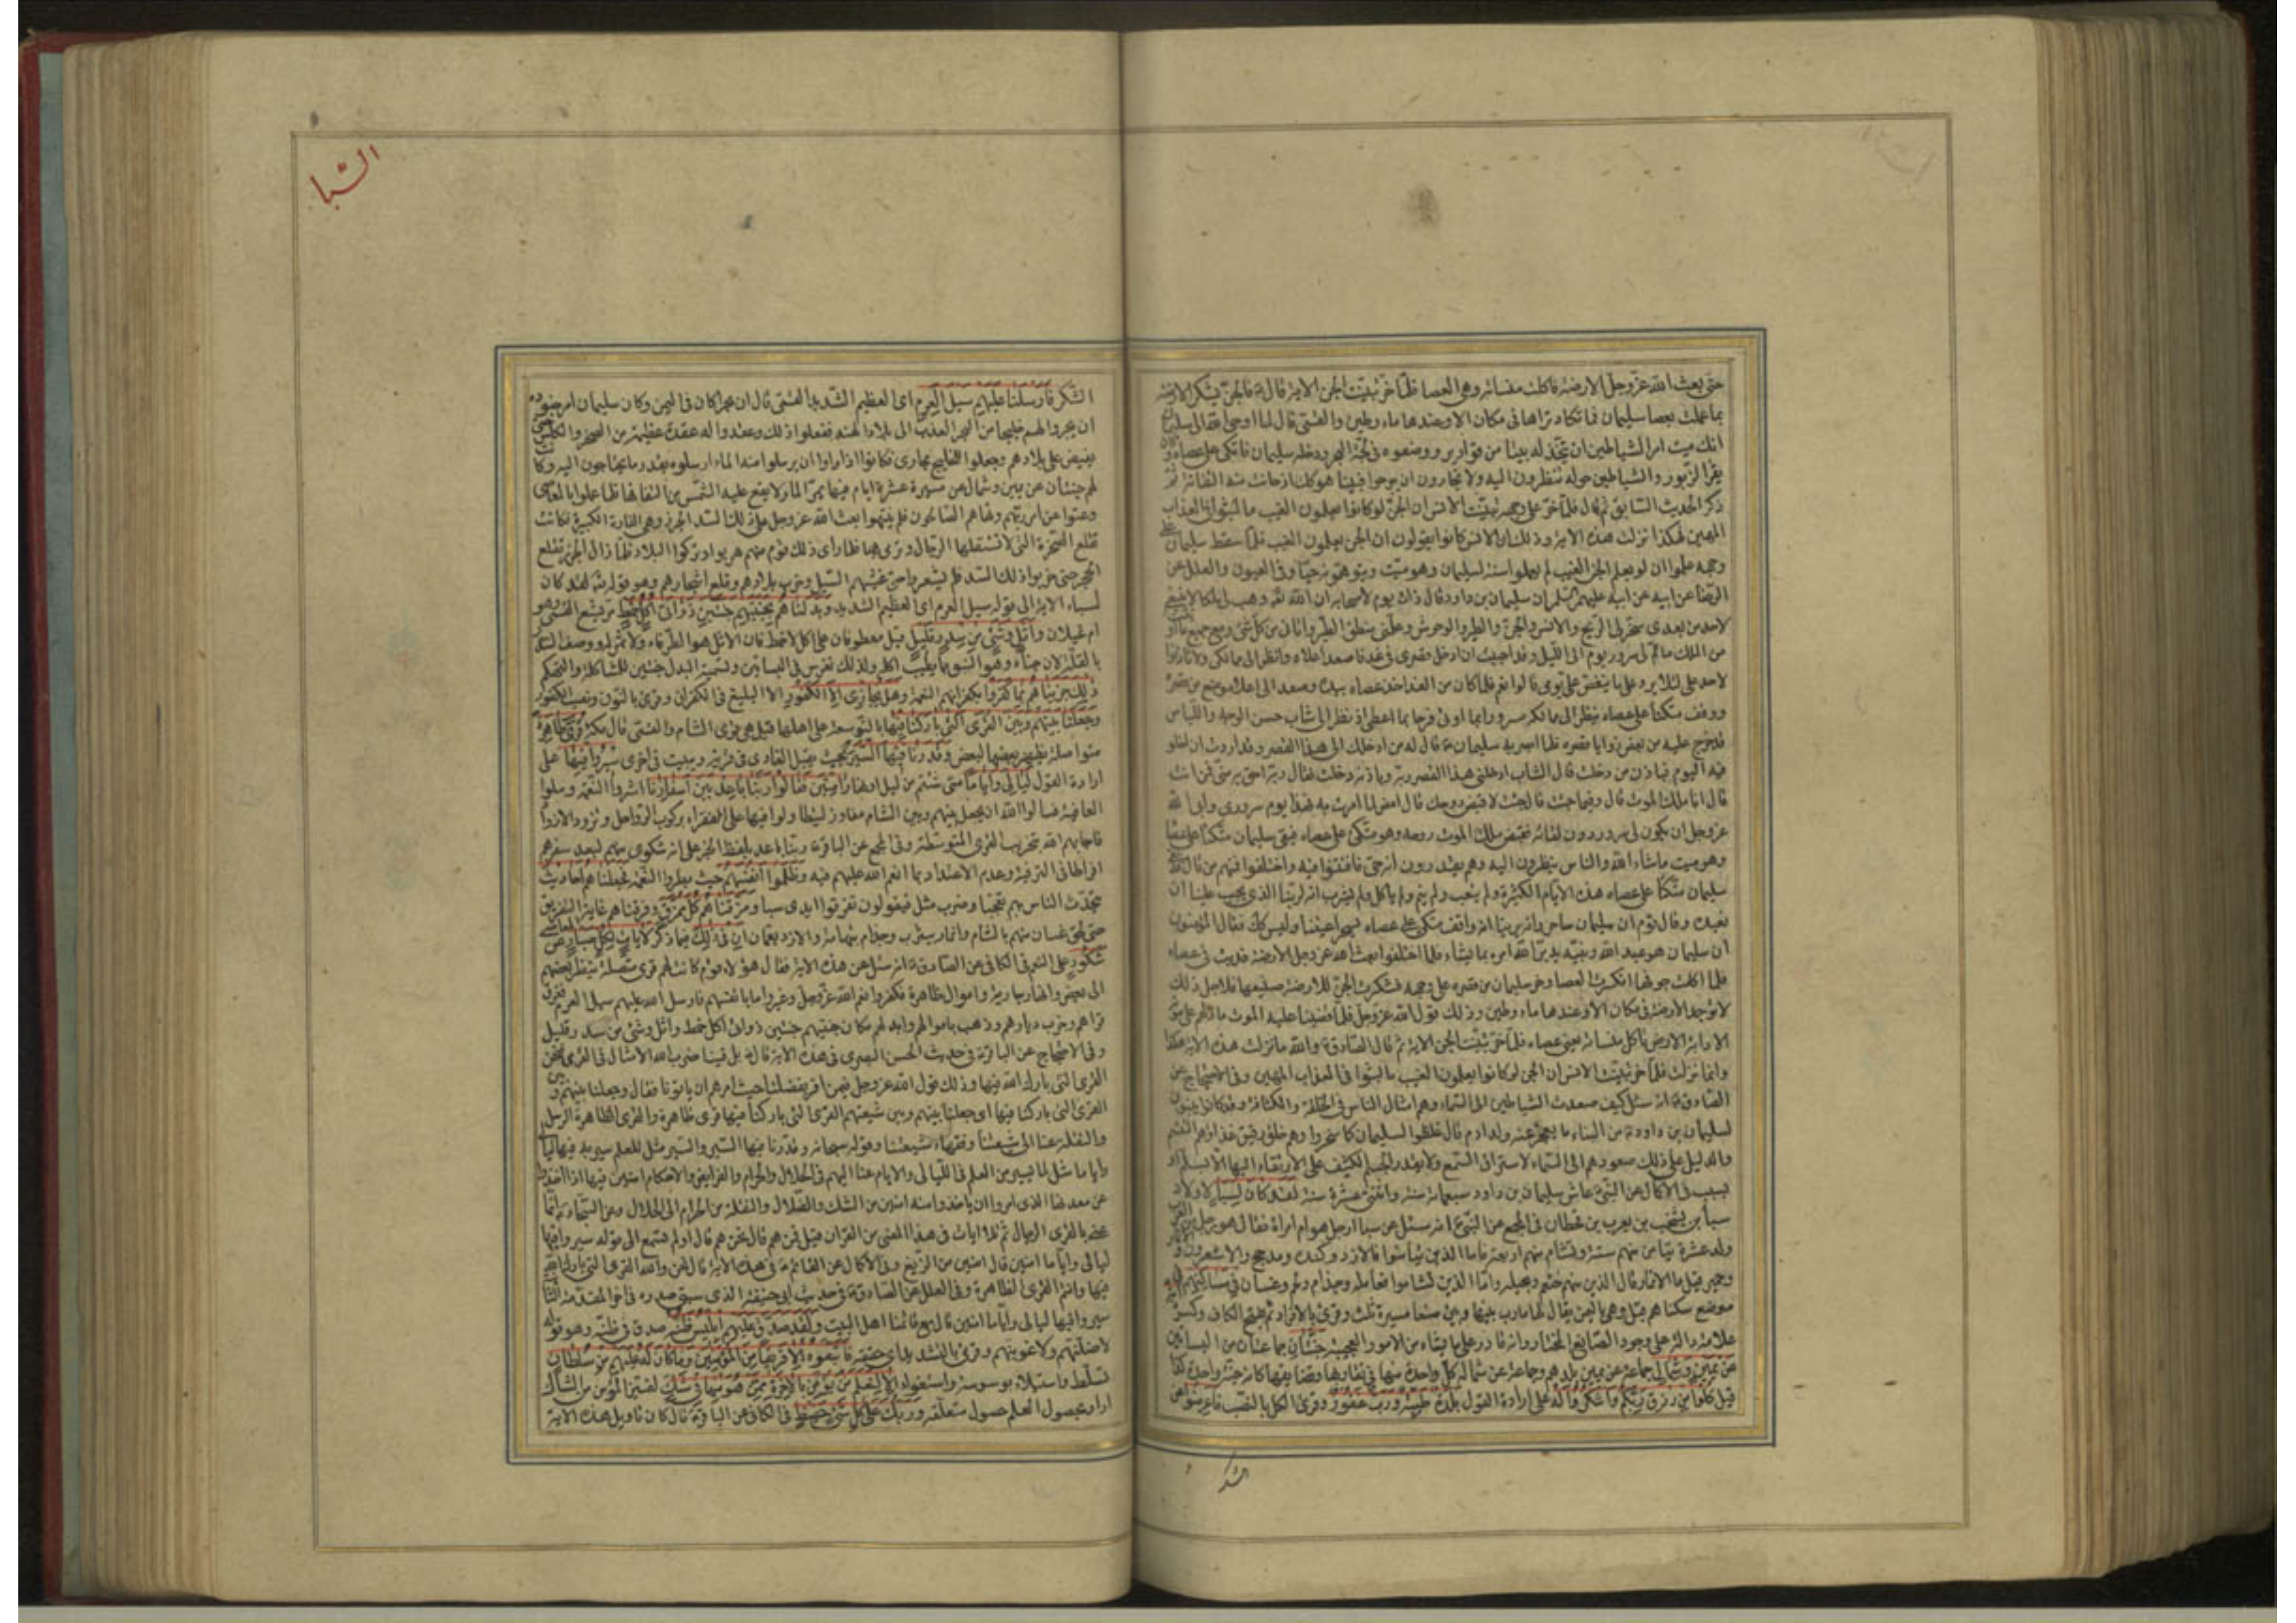 حتى بعث الله عز وجل الارضة فاكلت منسأته وهى العصا فلما خر تبينت الجن الاية قال فالجن تشكر الارضة
بما عملت بعصا سليمان فما تكاد تراها فى مكان الا وعندها ماء وطين والقمى قال لما اوحى الله الى سليمان
انك ميت امر الشياطين ان تتخذ له بيتا من قوارير ووضعوه فى لجة البحر ودخله سليمان فاتكى على عصاه وكان
يقرأ الزبور والشياطين حوله ينظرون اليه ولا يجارون ان يبرحوا فبينا هو كذلك اذ حانت منه التفاتة ثم
ذكر الحديث السابق ثم قال فلما خر على وجهه تبينت الانس ان الجن لو كانوا يعلمون الغيب ما لبثوا فى العذاب
المهين فهكذا نزلت هذه الاية وذلك ان الانس كانوا يقولون ان الجن يعلمون الغيب فلما سقط سليمان على
وجهه علموا ان لو يعلم الجن الغيب لم يعملوا سنة لسليمان وهو ميت ويتوهمونه حيا وفى العيون والعلل عن
الرضا عن ابيه عن ابيه عليهم السلم ان سليمان بن داود قال ذات يوم لاصحابه ان الله وهب لى ملكا لا ينبغى
لاحد من بعدى سخر لى الريح والانس والجن والطير والوحوش وعلمنى منطق الطير واتانى من كل شئ ومع جميع ما اوتيت
من الملك ما تم لى سرور يوم الى الليل وقد احببت ان ادخل قصرى فى غد فاصعد اعلاه وانظر الى ممالكى ولا تأذنوا
لاحد على لئلا يرد على ما ينغص على يومى قالوا نعم فلما كان من الغد اخذ عصاه بيده وصعد الى اعلا موضع من قصره
ووقف متكئا على عصاه ينظر الى ممالكه سرورا بما اوتى فرحا بما اعطى اذ نظر الى شاب حسن الوجه واللباس
قد خرج عليه من بعض زوايا قصره فلما ابصر به سليمان قال له من ادخلك الى هذا القصر وقد اردت ان اخلو
فيه اليوم فباذن من دخلت قال الشاب ادخلنى هذا القصر ربه وباذنه دخلت فقال ربه احق به منى فمن انت
قال انا ملك الموت قال وفيما جئت قال جئت لاقبض روحك قال امض لما امرت به فهذا يوم سرورى وابى الله
عز وجل ان يكون لى سرور دون لقائه فقبض ملك الموت روحه وهو متكئ على عصاه فبقى سليمان متكئا على عصاه
وهو ميت ما شاء الله والناس ينظرون اليه وهم يقدرون انه حى فافتتنوا فيه واختلفوا فمنهم من قال ان
سليمان متكأ على عصاه هذه الايام الكثيرة ولم يتعب ولم ينم ولم ياكل ولم يشرب انه لربنا الذى يجب علينا ان
نعبده وقال قوم ان سليمان ساحر وانه يرينا انه واقف متكئ على عصاه يسحر اعيننا وليس كذلك فقال المؤمنون
ان سليمان هو عبد الله ونبيه يدبر الله امره بما يشاء فلما اختلفوا بعث الله عز وجل الارضة فدبت فى عصاه
فلما اكلت جوفها انكسرت العصا وخر سليمان من قصره على وجهه فشكرت الجن للارضة صنيعها فلاجل ذلك
لا توجد الارضة فى مكان الا وعندها ماء وطين وذلك قول الله عز وجل فلما قضينا عليه الموت ما دلهم على موته
الا دابة الارض تاكل منسأته يعنى عصاه فلما خر تبينت الجن الاية ثم قال الصادق والله ما نزلت هذه الاية هكذا
وانما نزلت فلما خر تبينت الانس ان الجن لو كانوا يعلمون الغيب ما لبثوا فى العذاب المهين وفى الاحتجاج عن
الصادق انه سئل كيف صعدت الشياطين الى السماء وهم امثال الناس فى الخلقة والكثافة وقد كانوا يبنون
لسليمان بن داود من البناء ما يعجز عنه ولد ادم قال غلظوا لسليمان كما سخروا وهم خلق رقيق غذاؤهم التنسم
والدليل على ذلك صعودهم الى السماء لاستراق السمع ولا يقدر الجسم الكثيف على الارتقاء اليها الا بسلم او
بسبب فى الاكمال عن النبى عاش سليمان بن داود سبعمائة سنة واثنتى عشرة سنة لقد كان لسبأ لاولاد
سبأ بن يشجب بن يعرب بن قحطان فى المجمع عن النبى انه سئل عن سبا ارجل هو ام امراة فقال هو رجل من العرب
ولد عشرة تيامن منهم ستة وتشام منهم اربعة فاما الذين تيامنوا فالازد وكندة ومذحج والاشعرون وانمار
وحمير قيل ما الانمار قال الذين منهم خثعم وبجيلة واما الذين تشاموا فعاملة وجذام ولخم وغسان فى مساكنهم
موضع سكناهم قيل وهى باليمن يقال لها مارب بينها وبين صنعا مسيرة ثلث وقرئ بالافراد ثم بفتح الكاف وكسره
علامة دالة على وجود الصانع المختار وانه قادر على ما يشاء من الامور العجيبة جنتان جماعتان من البساتين
عن يمين وشمال جماعة عن يمين بلدهم وجماعة عن شماله كل واحدة منها فى تقاربها وتضايقها كانه جنة واحدة كذا
قيل كلوا من رزق ربكم واشكروا له على ارادة القول بلدة طيبة ورب غفور وقرئ الكل بالنصب فاعرضوا عن
الشكر
السبا
الشكر فارسلنا عليهم سيل العرم اى العظيم الشديد القمى قال ان بحرا كان فى اليمن وكان سليمان امر جنوده
ان يجروا لهم خليجا من البحر العذب الى بلاد الهند ففعلوا ذلك وعقدوا له عقدة عظيمة من الصخر والكلس حتى
يفيض على بلادهم وجعلوا للخليج مجارى فكانوا اذا ارادوا ان يرسلوا منه الماء ارسلوه بقدر ما يحتاجون اليه وكانت
لهم جنتان عن يمين وشمال عن مسيرة عشرة ايام فيها يمر المار لا يقع عليه الشمس من التفافها فلما عملوا بالمعاصى
وعتوا عن امر ربهم ونهاهم الصالحون فلم ينتهوا بعث الله عز وجل على ذلك السد الجرذ وهى الفارة الكبيرة فكانت
تقلع الصخرة التى لا تستقلها الرجال وترمى بها فلما راى ذلك قوم منهم هربوا وتركوا البلاد فما زال الجرذ تقلع
الحجر حتى خربوا ذلك السد فلم يشعروا حتى غشيهم السيل وخرب بلادهم وقلع اشجارهم وهو قوله لقد كان
لسباء الاية الى قوله سيل العرم اى العظيم الشديد وبدلناهم بجنتيهم جنتين ذواتى اكل خمط مر بشع القمى وهو
ام غيلان واثل وشئ من سدر قليل قيل معطوفان على اكل لا خمط فان الاثل هو الطرفاء ولا ثمر له ووصف السدر
بالقلة لان جناه وهو النبق مما يطيب اكله ولذلك تغرس فى البساتين وتسمية البدل جنتين للمشاكلة والتهكم
ذلك جزيناهم بما كفروا بكفرانهم النعمة وهل يجازى الا الكفور الا البليغ فى الكفران وقرئ بالنون ونصب الكفور
وجعلنا بينهم وبين القرى التى باركنا فيها بالتوسعة على اهلها قيل هى قرى الشام والقمى قال مكة قرى ظاهرة
متواصلة يظهر بعضها لبعض وقدرنا فيها السير بحيث يقيل الغادى فى قرية ويبيت فى اخرى سيروا فيها على
ارادة القول ليالى واياما متى شئتم من ليل او نهار امنين فقالوا ربنا باعد بين اسفارنا اشروا النعمة وملوا
العافية فسالوا الله ان يجعل بينهم وبين الشام مفاوز ليتطاولوا فيها على الفقراء بركوب الرواحل وتزود الازواد
فاجابهم الله بتخريب القرى المتوسطة وفى المجمع عن الباقر ربنا باعد بلفظ الخبر على انه شكوى منهم لبعد سفرهم
افراطا فى الترفيه وعدم الاعتداد بما انعم الله عليهم فيه وظلموا انفسهم حيث بطروا النعمة فجعلناهم احاديث
يتحدث الناس بهم تعجبا وضرب مثل فيقولون تفرقوا ايدى سبا ومزقناهم كل ممزق وفرقناهم غاية التفريق
حتى لحق غسان منهم بالشام وانمار بيثرب وجذام بتهامة والازد بعمان ان فى ذلك فيما ذكر لايات لكل صبار عن المعاصى
شكور على النعم فى الكافى عن الصادق انه سئل عن هذه الاية فقال هؤلاء قوم كانت لهم قرى متصلة ينظر بعضهم
الى بعض وانهار جارية واموال ظاهرة فكفروا نعم الله عز وجل وغيروا ما بانفسهم فارسل الله عليهم سيل العرم فغرق
قراهم وخرب ديارهم وذهب باموالهم وابدلهم مكان جنتيهم جنتين ذواتى اكل خمط واثل وشئ من سدر وقليل
وفى الاحتجاج عن الباقر فى حديث الحسن البصرى فى هذه الاية قال بل فينا ضرب الله الامثال فى القرى فنحن
القرى التى بارك الله فيها وذلك قول الله عز وجل فيمن اقر بفضلنا حيث امرهم ان ياتونا فقال وجعلنا بينهم وبين
القرى التى باركنا فيها اى جعلنا بينهم وبين شيعتهم القرى التى باركنا فيها قرى ظاهرة والقرى الظاهرة الرسل
والنقلة عنا الى شيعتنا وفقهاء شيعتنا وقوله سبحانه وقدرنا فيها السير والسير مثل للعلم سير به فيها ليالى
واياما مثل لما يسير من العلم فى الليالى والايام عنا اليهم فى الحلال والحرام والفرايض والاحكام امنين فيها اذا اخذوا
عن معدنها الذى امروا ان ياخذوا منه امنين من الشك والضلال والنقلة من الحرام الى الحلال وعن السجاد انما
عنى بالقرى الرجال ثم تلا ايات فى هذا المعنى من القران قيل فمن هم قال نحن هم قال اولم تسمع الى قوله سيروا فيها
ليالى واياما امنين قال امنين من الزيغ وفى الاكمال عن القائم فى هذه الاية قال نحن والله القرى التى بارك الله
فيها وانتم القرى الظاهرة وفى العلل عن الصادق فى حديث ابى حنيفة الذى سبق صدره فى اخر المقدمة الثانية
سيروا فيها ليالى واياما امنين قال مع قائمنا اهل البيت ولقد صدق عليهم ابليس ظنه صدق فى ظنه وهو قوله
لاضلنهم ولاغوينهم وقرئ بالتشديد اى حققه فاتبعوه الا فريقا من المؤمنين وما كان له عليهم من سلطان
تسلط واستيلاء بوسوسة واستغواء الا لنعلم من يؤمن بالاخرة ممن هو منها فى شك ليتميز المؤمن من الشاك
اراد بحصول العلم حصول متعلقه وربك على كل شئ حفيظ فى الكافى عن الباقر قال كان تاويل هذه الاية